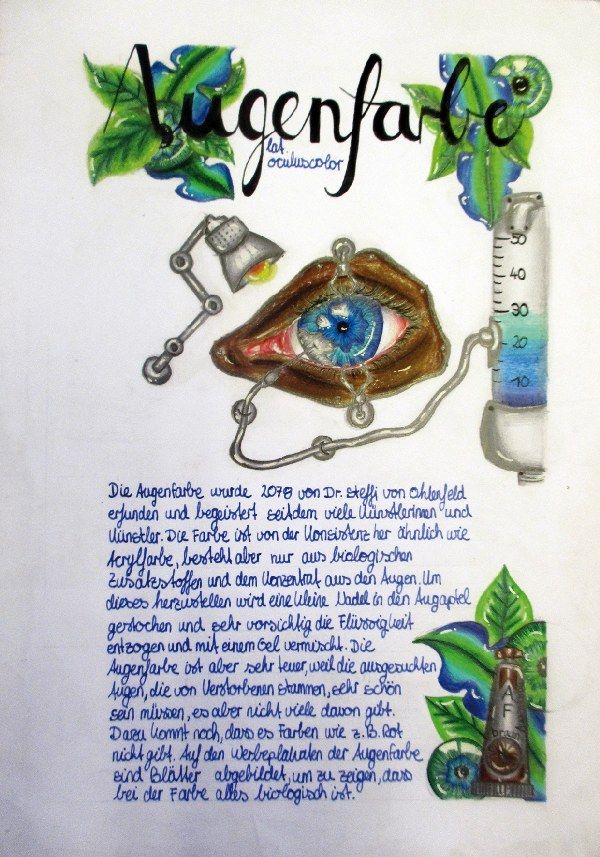 Augenfarbe
lat.
oculuscolor
50
40
30
20
10
Die Augenfarbe wurde 2078 von Dr. Steffi von Ohlenfeld
erfunden und begeistert seitdem viele Künstlerinnen und
Künstler. Die Farbe ist von der Konsistenz her ähnlich wie
Acrylfarbe, besteht aber nur aus biologischen
Zusatzstoffen und dem Konzentrat aus den Augen. Um
dieses herzustellen wird eine kleine Nadel in den Augapfel
gestochen und sehr vorsichtig die Flüssigkeit
entzogen und mit einem Gel vermischt. Die
Augenfarbe ist aber sehr teuer, weil die ausgesuchten
Augen, die von Verstorbenen stammen, sehr schön
sein müssen, es aber nicht viele davon gibt.
Dazu kommt noch, dass es Farben wie z.B. Rot
nicht gibt. Auf den Werbeplakaten der Augenfarbe
sind Blätter abgebildet, um zu zeigen, dass
bei der Farbe alles biologisch ist.
AF
braun